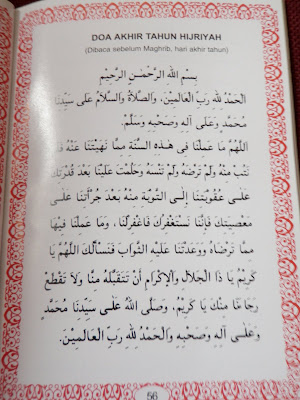 DOA AKHIR TAHUN HIJRIYAH
(Dibaca sebelum Maghrib, hari akhir tahun)
بِسْمِ اللهِ الرَّحْمٰنِ الرَّحِيْمِ
اَلْحَمْدُ للهِ رَبِّ الْعَالَمِيْنَ، وَالصَّلَاةُ وَالسَّلَامُ عَلَى سَيِّدِنَا
مُحَمَّدٍ وَعَلَى آلِهِ وَصَحْبِهِ وَسَلَّمَ.
اَللّٰهُمَّ مَا عَمِلْنَا فِى هٰذِهِ السَّنَةِ مِمَّا نَهَيْتَنَا عَنْهُ فَلَمْ
نَتُبْ مِنْهُ وَلَمْ تَرْضَهُ وَلَمْ تَنْسَهُ وَحَلُمْتَ عَلَيْنَا بَعْدَ قُدْرَتِكَ
عَلَى عُقُوْبَتِنَا وَدَعَوْتَنَا إِلَى التَّوْبَةِ مِنْهُ بَعْدَ جُرْأَتِنَا عَلَى
مَعْصِيَتِكَ فَإِنَّنَا نَسْتَغْفِرُكَ فَاغْفِرْلَنَا، وَمَا عَمِلْنَا فِيْهَا
مِمَّا تَرْضَاهُ وَوَعَدْتَنَا عَلَيْهِ الثَّوَابَ فَنَسْأَلُكَ اللّٰهُمَّ يَا
كَرِيْمُ يَا ذَا الْجَلَالِ وَالْإِكْرَامِ أَنْ تَتَقَبَّلَهُ مِنَّا وَلَا تَقْطَعْ
رَجَاءَنَا مِنْكَ يَا كَرِيْمُ، وَصَلَّى اللهُ عَلَى سَيِّدِنَا مُحَمَّدٍ
وَعَلَى آلِهِ وَصَحْبِهِ وَالْحَمْدُ للهِ رَبِّ الْعَالَمِيْنَ.
56